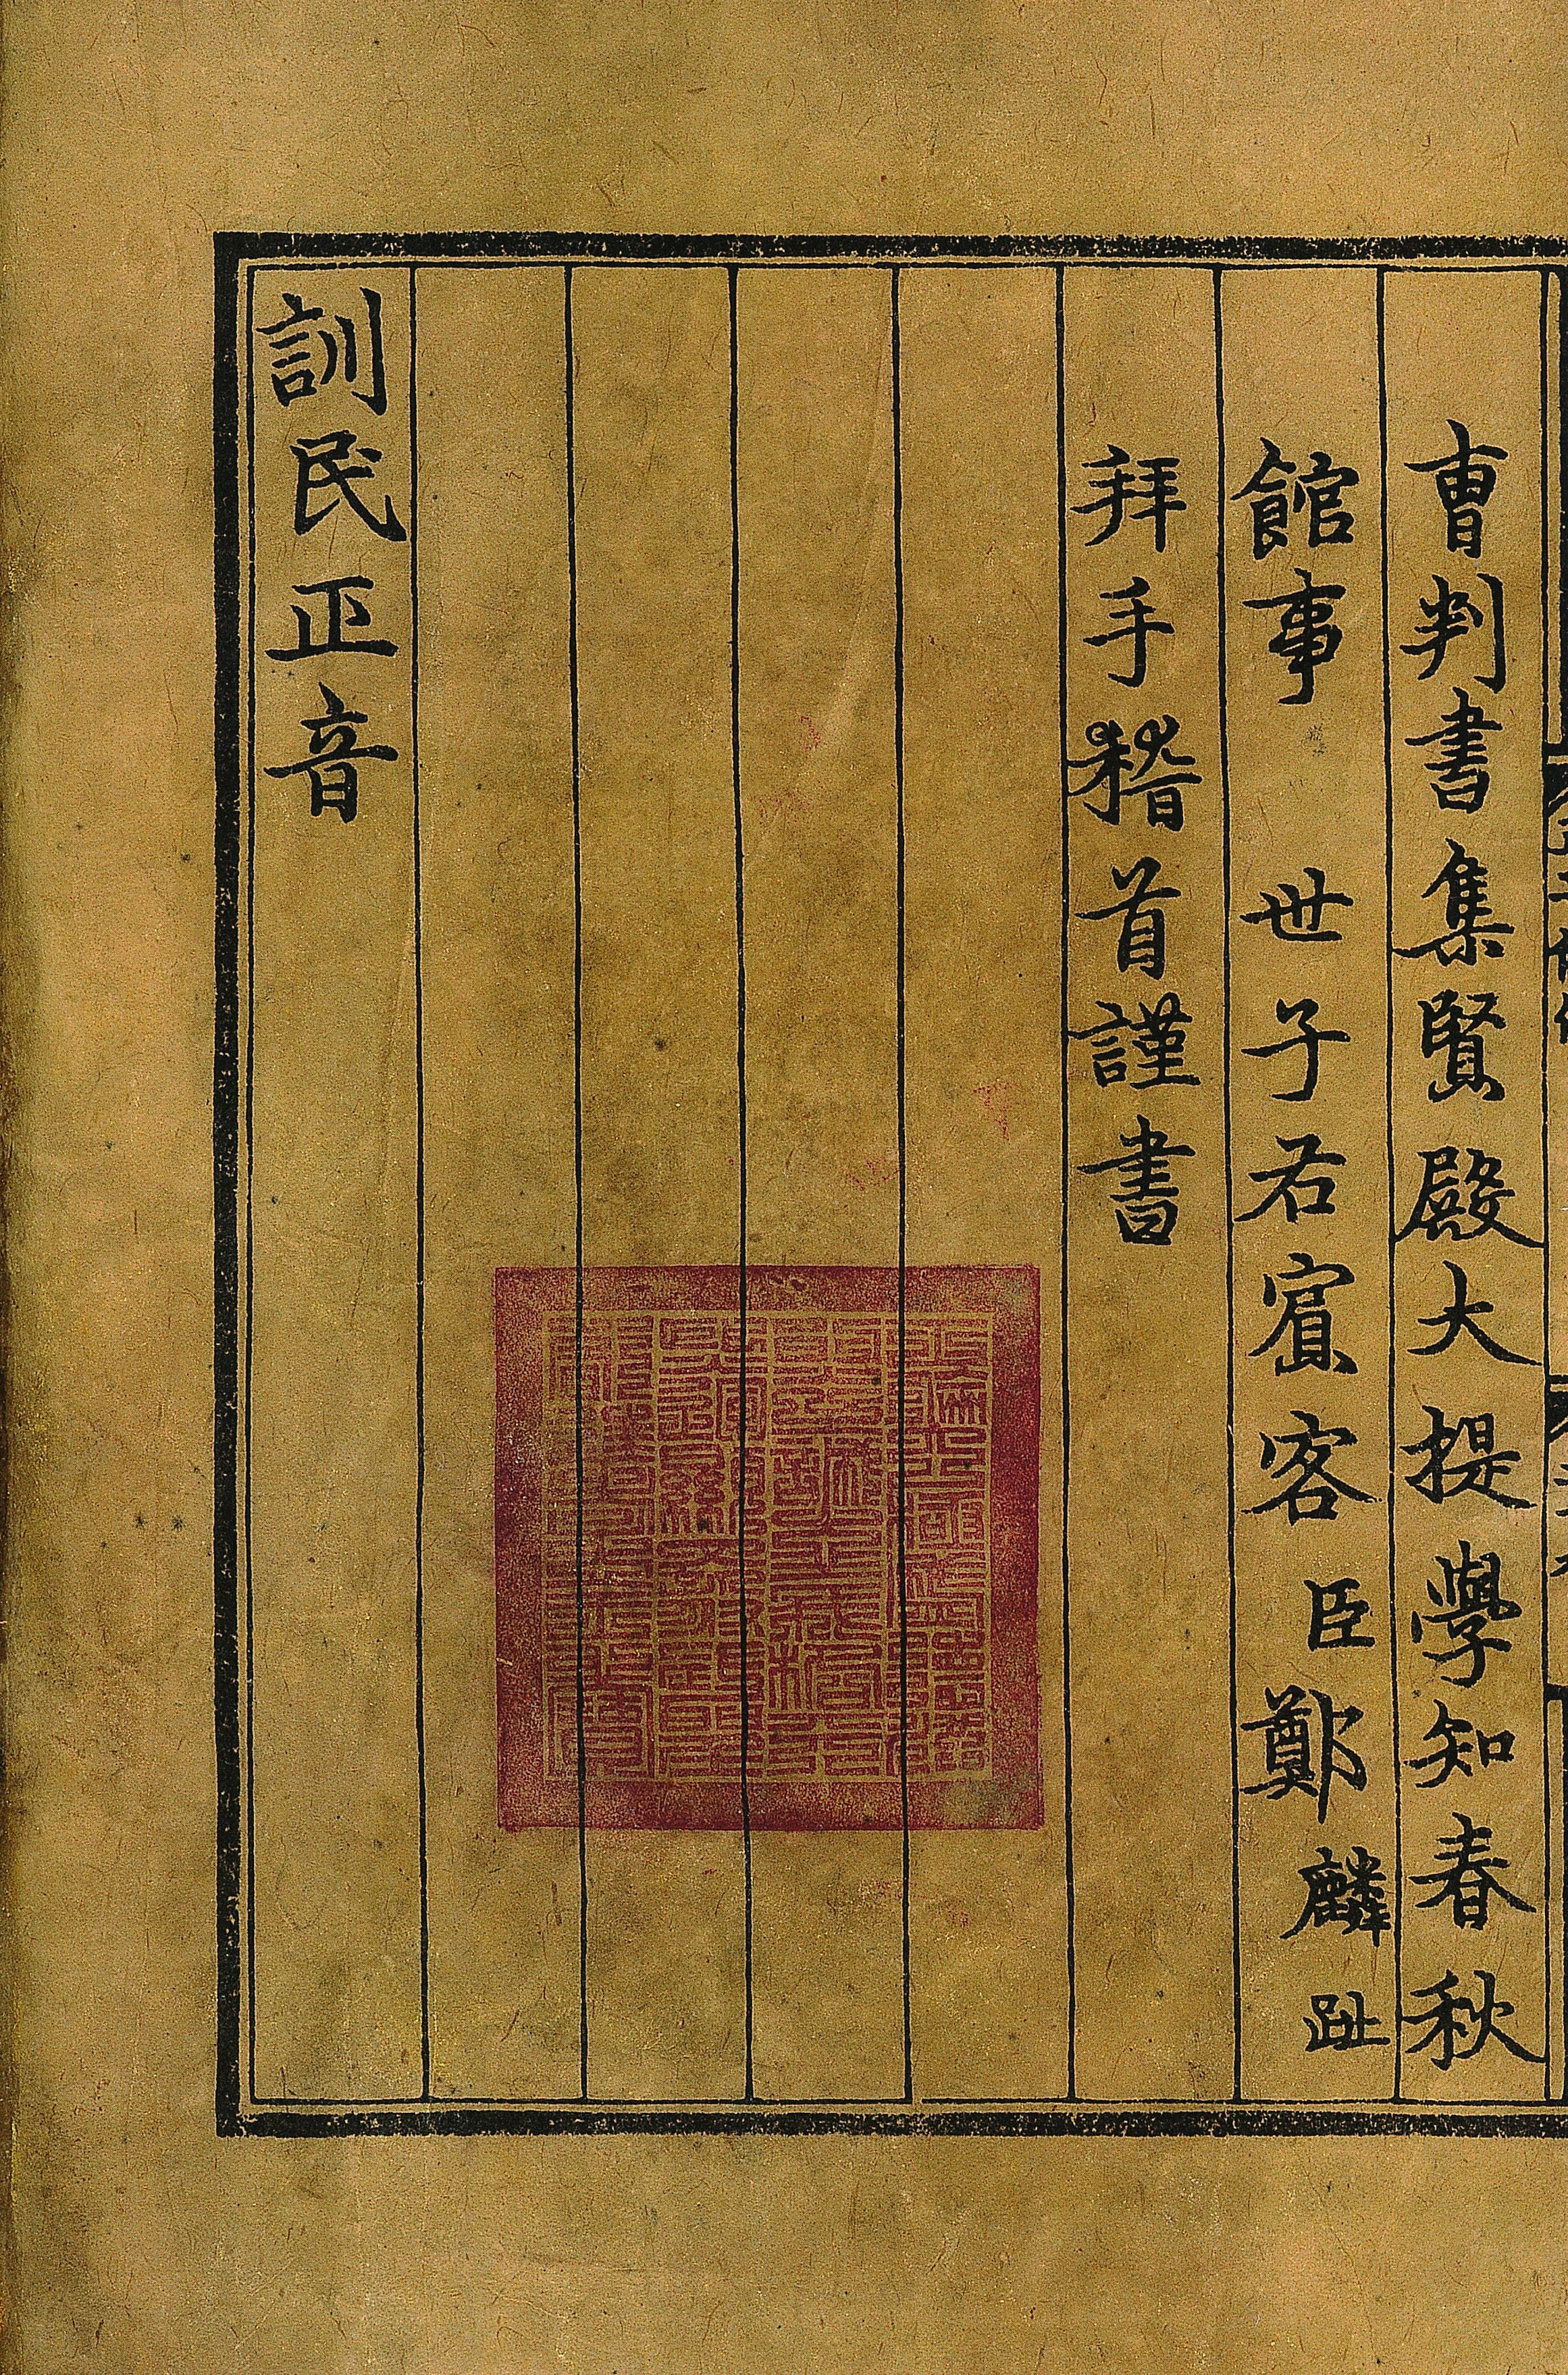 曹判書集賢殿大提學知春秋
館事 世子右賓客臣鄭麟趾
拜手稽首謹書
訓民正音